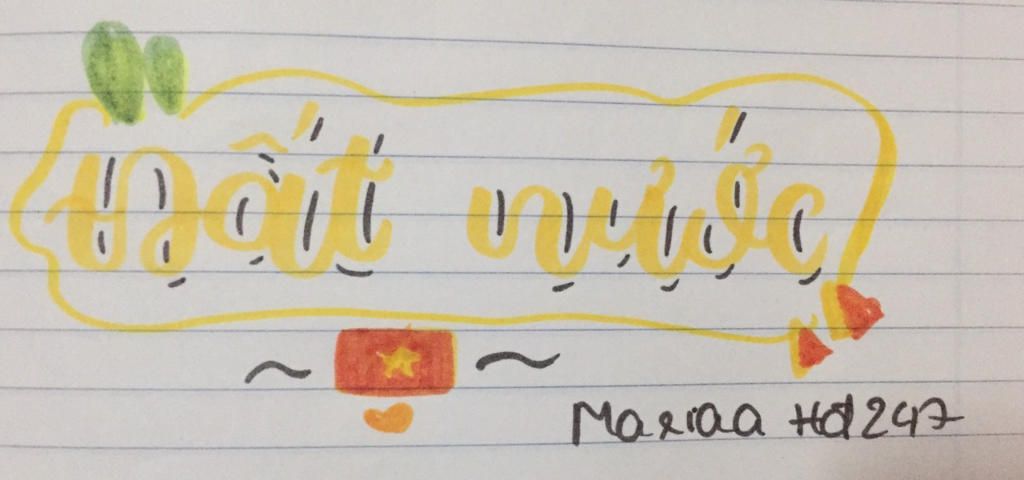 Đất nước
Mariaa Hd247